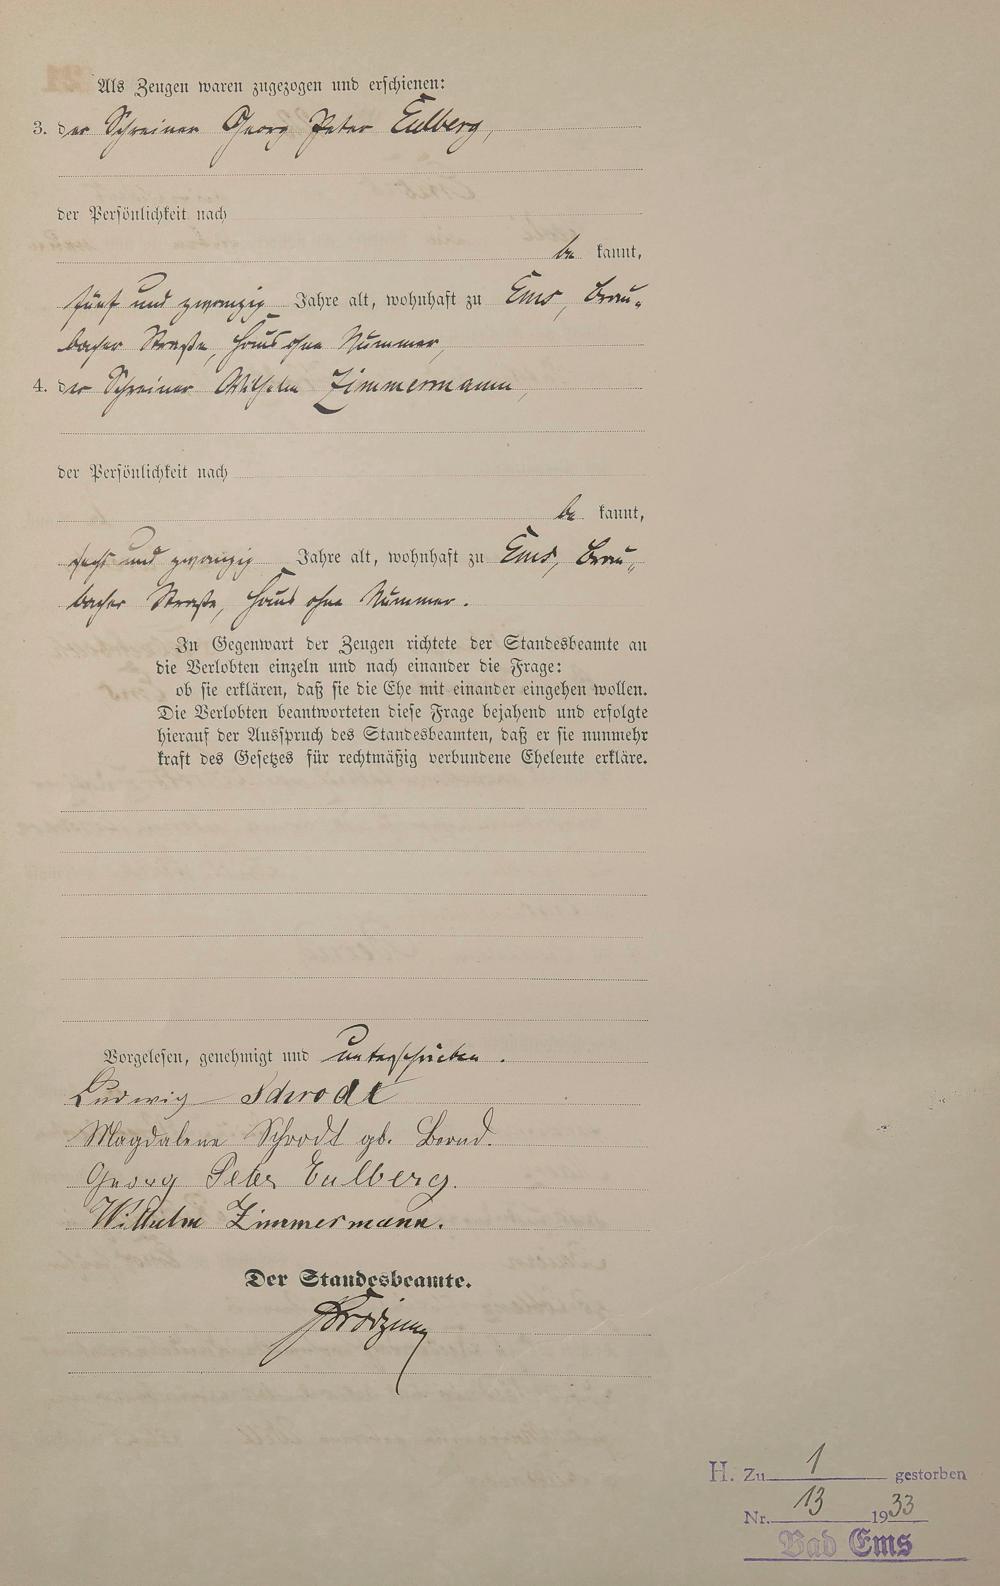 Als Zeugen waren zugezogen und erschienen:
3. der Schreiner Georg Peter Eulberg,
der Persönlichkeit nach
be kannt,
fünf und zwanzig Jahre alt, wohnhaft zu Ems, Brau-
bacher Straße, Haus ohne Nummer,
4. der Schreiner Wilhelm Zimmermann,
der Persönlichkeit nach
be kannt,
sechs und zwanzig Jahre alt, wohnhaft zu Ems, Brau-
bacher Straße, Haus ohne Nummer.
In Gegenwart der Zeugen richtete der Standesbeamte an
die Verlobten einzeln und nach einander die Frage:
ob sie erklären, daß sie die Ehe mit einander eingehen wollen.
Die Verlobten beantworteten diese Frage bejahend und erfolgte
hierauf der Ausspruch des Standesbeamten, daß er sie nunmehr
kraft des Gesetzes für rechtmäßig verbundene Eheleute erkläre.
Vorgelesen, genehmigt und unterschrieben.
Ludwig Schrodt
Magdalene Schrodt gb. Bernd.
Georg Peter Eulberg.
Wilhelm Zimmermann.
Der Standesbeamte.
H. Zu 1 gestorben
Nr. 13 1933
Bad Ems